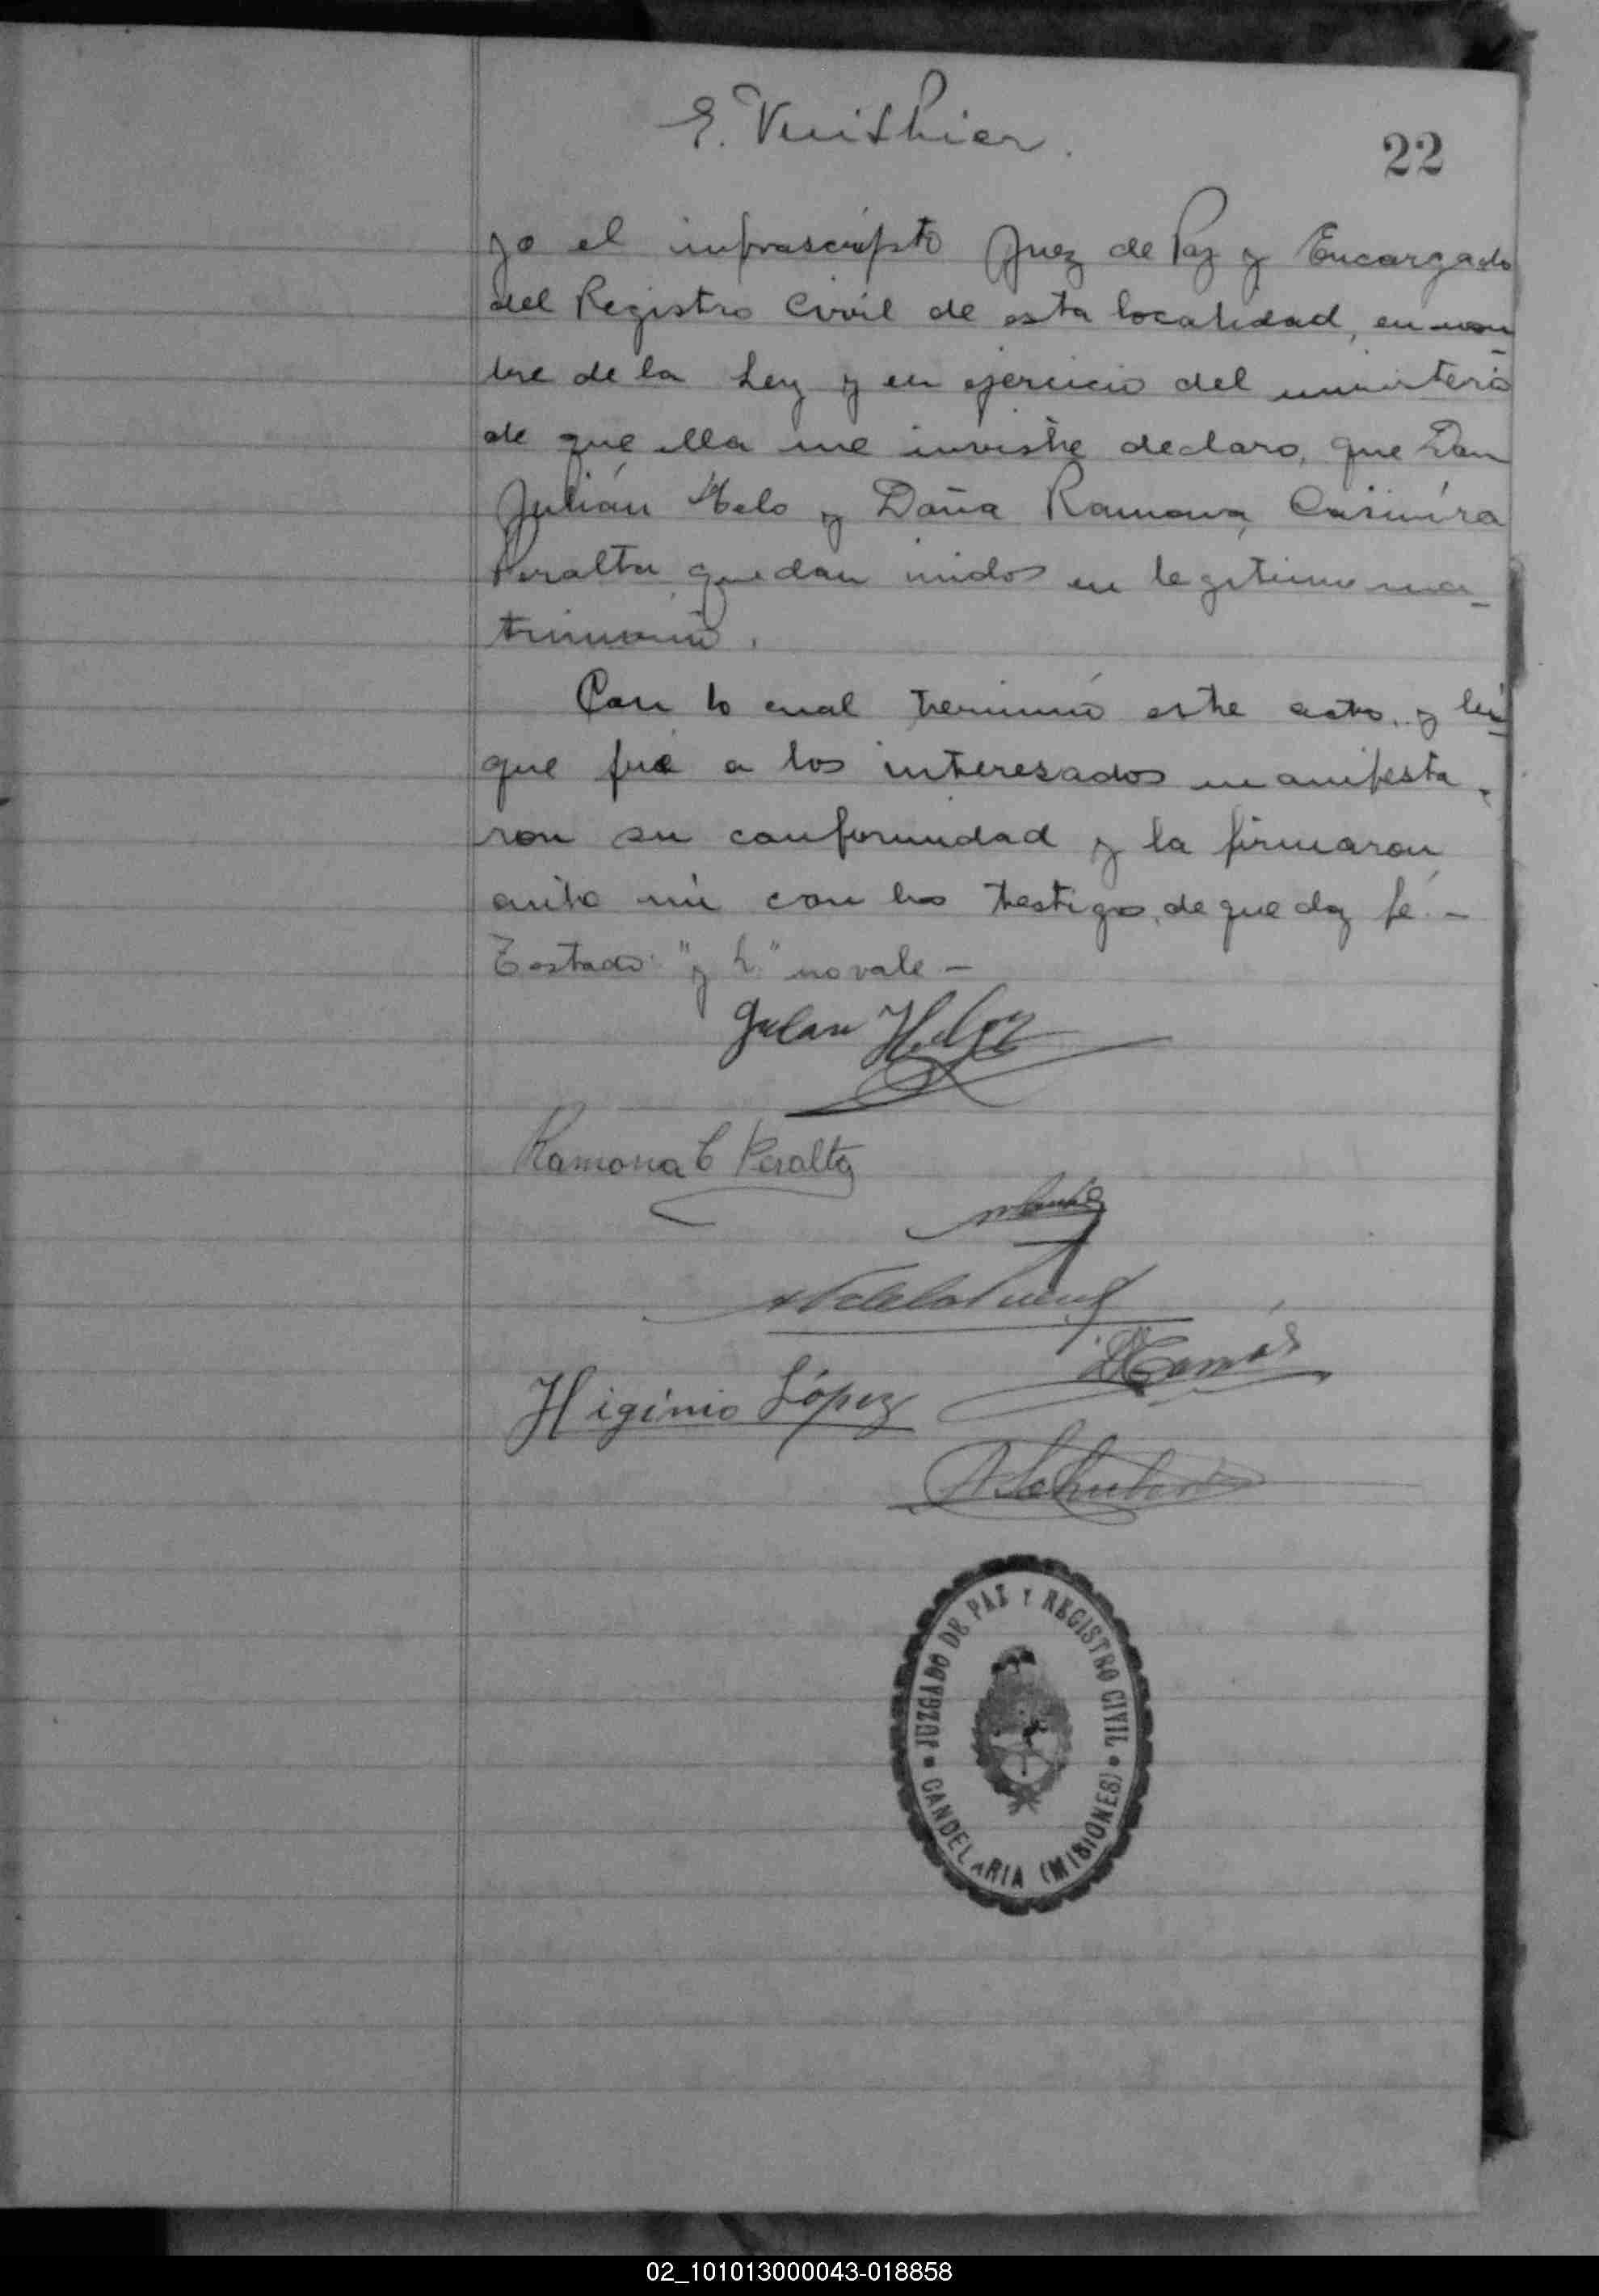 22
yo el infrascripto Juez de Paz y Encargado
del Registro Civil de esta localidad, en nom
bre de la Ley y en ejercicio del ministerio
de que ella me inviste declaro, que Don
Julián Helo y Doña Ramona Casimíra
Peralta quedan unidos en legitimo ma-
trimonio.
Con lo cual terminó este acto, y leí
que fué a los interesados manifesta-
ron su conformidad y la firmaron
ante mi con los testigos, de que doy fé. -
Testado: "y L." no vale -
Ramona C Peralta
Higinio López
JUZGADO DE PAZ Y REGISTRO CIVIL
CANDELARIA (MISIONES)
02_101013000043-018858